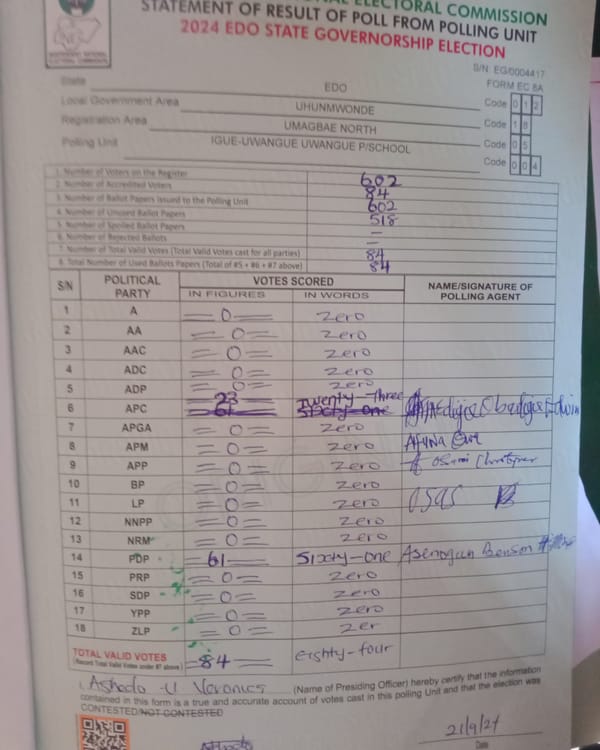 NAL ELECTORAL COMMISSION
STATEMENT OF RESULT OF POLL FROM POLLING UNIT
2024 EDO STATE GOVERNORSHIP ELECTION
S/N: EG/0004417
FORM EC 8A
State EDO Code 0 1 2
Local Government Area UHUNMWONDE Code 1 8
Registration Area UMAGBAE NORTH Code 0 5
Polling Unit IGUE-UWANGUE UWANGUE P/SCHOOL Code 0 0 4
1. Number of Voters on the Register 602
2. Number of Accredited Voters 84
3. Number of Ballot Papers issued to the Polling Unit 602
4. Number of Unused Ballot Papers 518
5. Number of Spoiled Ballot Papers =
6. Number of Rejected Ballots =
7. Number of Total Valid Votes (Total Valid Votes cast for all parties) 84
8. Total Number of Used Ballots Papers (Total of #5 + #6 + #7 above) 84
S/N POLITICAL PARTY VOTES SCORED NAME/SIGNATURE OF POLLING AGENT
IN FIGURES IN WORDS
1 A =0= zero
2 AA =0= zero
3 AAC =0= zero
4 ADC =0= zero
5 ADP =0= zero
23 Twenty-Three
6 APC 61 Sixty-one
7 APGA =0= zero
8 APM =0= zero
9 APP =0= zero
10 BP =0= zero
11 LP =0= zero OSAS
12 NNPP =0= zero
13 NRM =0= zero
14 PDP =61= Sixty-one Asenogun Benson
15 PRP =0= zero
16 SDP =0= zero
17 YPP =0= zero
18 ZLP =0= zer
TOTAL VALID VOTES =84= eighty-four
(Record Total Valid Votes under #7 above)
I, U Veronica (Name of Presiding Officer) hereby certify that the information
contained in this form is a true and accurate account of votes cast in this polling Unit and that the election was
CONTESTED/NOT CONTESTED
21/9/24
Date